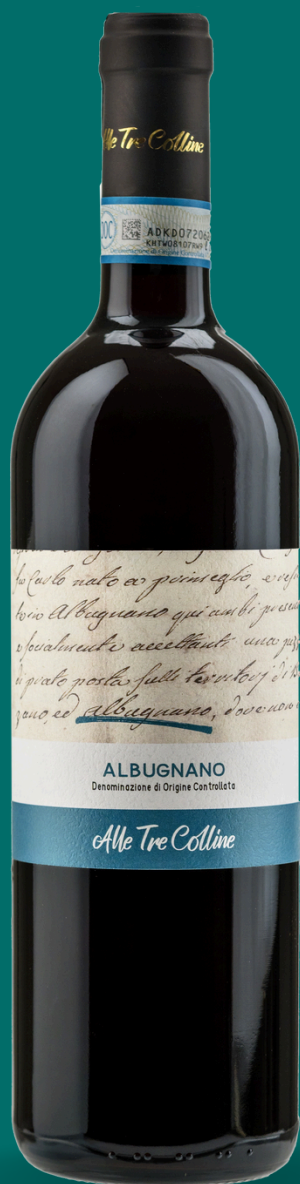 Alle Tre Colline
DOC
ADKD07206
KHTW08107AW9
Carlo nato a primeglio, e
Albugnano qui ambi
accettanti una
prato posta sulli territorj di
albugnano, dove non
ALBUGNANO
Denominazione di Origine Controllata
Alle Tre Colline